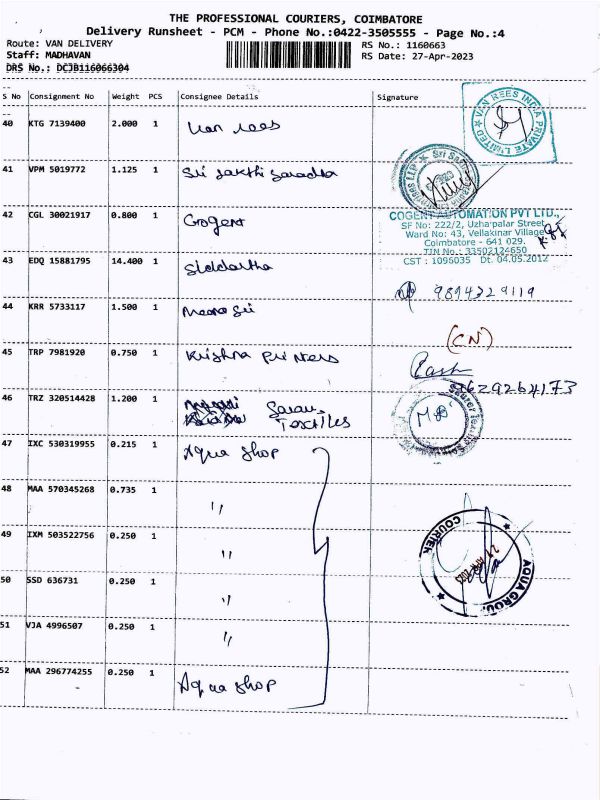 THE PROFESSIONAL COURIERS, COIMBATORE
Delivery Runsheet - PCM - Phone No.:0422-3505555 - Page No.:4
Route: VAN DELIVERY
RS No.: 1160663
Staff: MADHAVAN
RS Date: 27-Apr-2023
DRS No.: DCJB116066304
S No Consignment No Weight PCS Consignee Details Signature
40 KTG 7139400 2.000 1 Van rees
VAN REES INDIA PRIVATE LIMITED
41 VPM 5019772 1.125 1 Sri Sakthi Saradha
42 CGL 30021917 0.800 1 Cogent
COGENT AUTOMATION PVT LTD.,
SF No: 222/2, Uzhaipalar Street,
Ward No: 43, Vellakinar Village
Coimbatore - 641 029.
TIN No : 33502124650
CST : 1096035 Dt. 04.05.2012
43 EDQ 15881795 14.400 1 Siddartha
9894329119
44 KRR 5733117 1.500 1 Meera Sri
(CN)
45 TRP 7981920 0.750 1 Krishna Printers
Cash
9629264173
46 TRZ 320514428 1.200 1 Saran
Textiles
47 IXC 530319955 0.215 1 Aqua shop
48 MAA 570345268 0.735 1 "
49 IXM 503522756 0.250 1 "
COURIER
AQUA GROUP
50 SSD 636731 0.250 1 "
51 VJA 4996507 0.250 1 "
52 MAA 296774255 0.250 1 Aqua shop